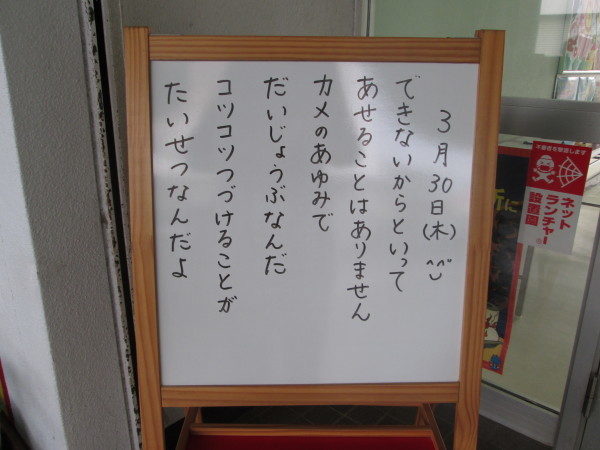 3月30日(木)^^
できないからといって
あせることはありません
カメのあゆみで
だいじょうぶなんだ
コツコツつづけることが
たいせつなんだよ
ネット
ランチャー
設置園